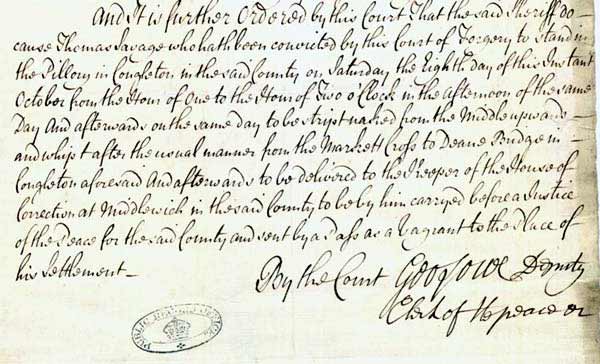 And it is further Ordered by this Court That the said Sheriff do
cause Thomas Savage who hath been convicted by this Court of Forgery to stand in
the Pillory in Congleton in the said County on Saturday the Eighth day of this Instant
October from the Hour of One to the Hour of Two o'Clock in the afternoon of the same
Day And afterwards on the same day to be stript naked from the Middle upwards
and whipt after the usual manner from the Markett Cross to Deane Bridge in
Congleton aforesaid And afterwards to be delivered to the Keeper of the House of
Correction at Middlewich in the said County to be by him carryed before a Justice
of the Peace for the said County and sent by a Pass as a Vagrant to the Place of
his Settlement
By the Court Deputy
Clerk of peace
PUBLIC RECORD OFFICE